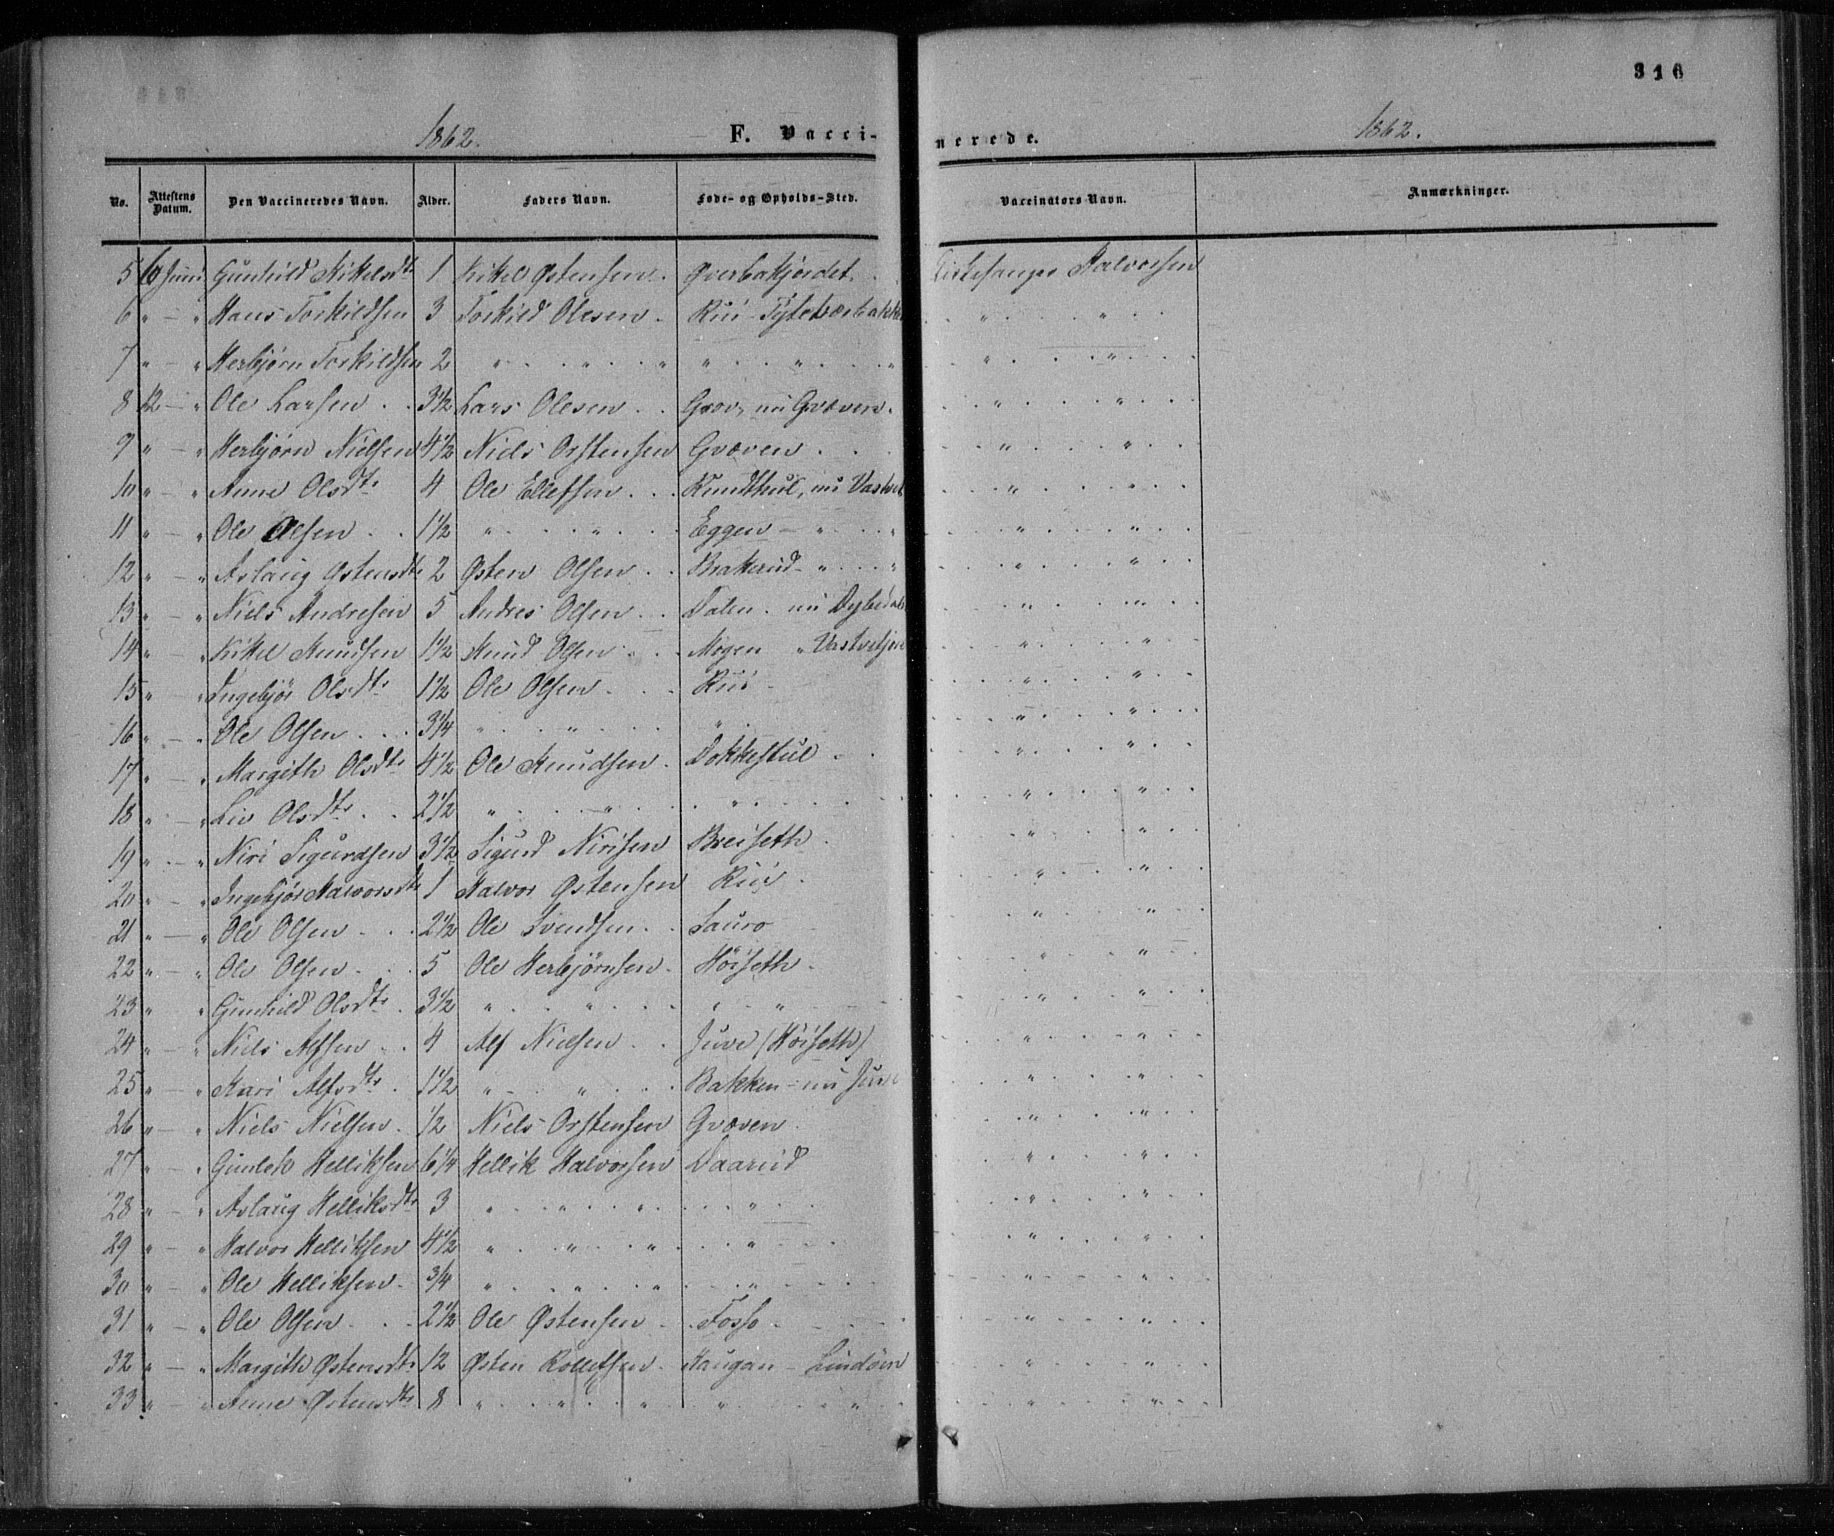 316
1862. F. Vacci-nerede. 1862.
No. Attestens Datum. Den Vaccineredes Navn. Alder. Faders Navn. Føde- og Opholds-Sted. Vaccinators Navn. Anmærkninger.
5 6 Juni Gunhild Kikelsdtr 1 Kikel Østensen Øverbakjordet. Kirkesanger Halvorsen
6 " — " Hans Torkildsen 3 Torkild Olesen Rui " "
7 " — " Herbjørn Torkildsen 2 " " " " " " " "
8 12 — " Ole Larsen 3 1/2 Lars Olesen Grov, nu Græven. " "
9 " — " Herbjørn Nielsen 4 1/2 Niels Orstensen Græven " "
10 " — " Anne Olsdtr 4 Ole Ellefsen nu " "
11 " — " Ole Olsen 1 1/2 " " Eggen — " " " "
12 " — " Aslaug Østensdtr 2 Østen Olsen Brakerud " " " "
13 " — " Niels Andresen 5 Andres Olsen Dalen nu " "
14 " — " Kikel Knudsen 1 1/2 Knud Olsen Mogen " " "
15 " — " Ingebjør Olsdtr 1 1/2 Ole Olsen Rui " "
16 " — " Ole Olsen 3/4 " " " " "
17 " — " Margith Olsdtr 4 1/2 Ole Knudsen Dokkestul " "
18 " — " Liv Olsdtr 2 1/2 " " " " "
19 " — " Niri Sigurdsen 3 1/2 Sigurd Nirisen Breiseth " "
20 " — " Ingebjør Halvorsdtr 1 Halvor Østensen Rui " "
21 " — " Ole Olsen 2 1/2 Ole Svendsen Sauro " "
22 " — " Ole Olsen 5 Ole Herbjørnsen Høiseth " "
23 " " Gunhild Olsdtr 3 1/2 " " " " " "
24 " — " Niels Alfsen 4 Alf Nielsen Juve (Høiseth) " "
25 " — " Kari Alfsdtr 1 1/2 " " Bakken — nu Juve " "
26 " — " Niels Nielsen 1/2 Niels Orstensen Græven " "
27 " — " Gunlek Helliksen 6 1/4 Hellik Halvorsen Daarud " "
28 " — " Aslaug Helliksdtr 3 " " " " " "
29 " — " Halvor Helliksen 4 1/2 " " " " " "
30 " — " Ole Helliksen 3/4 " " " " " "
31 " — " Ole Olsen 2 1/2 Ole Østensen Fosso " "
32 " — " Margith Østensdtr 12 Østen Rollefsen Haugan — " "
33 " — " Anne Østensdtr 8 " " " " " " "